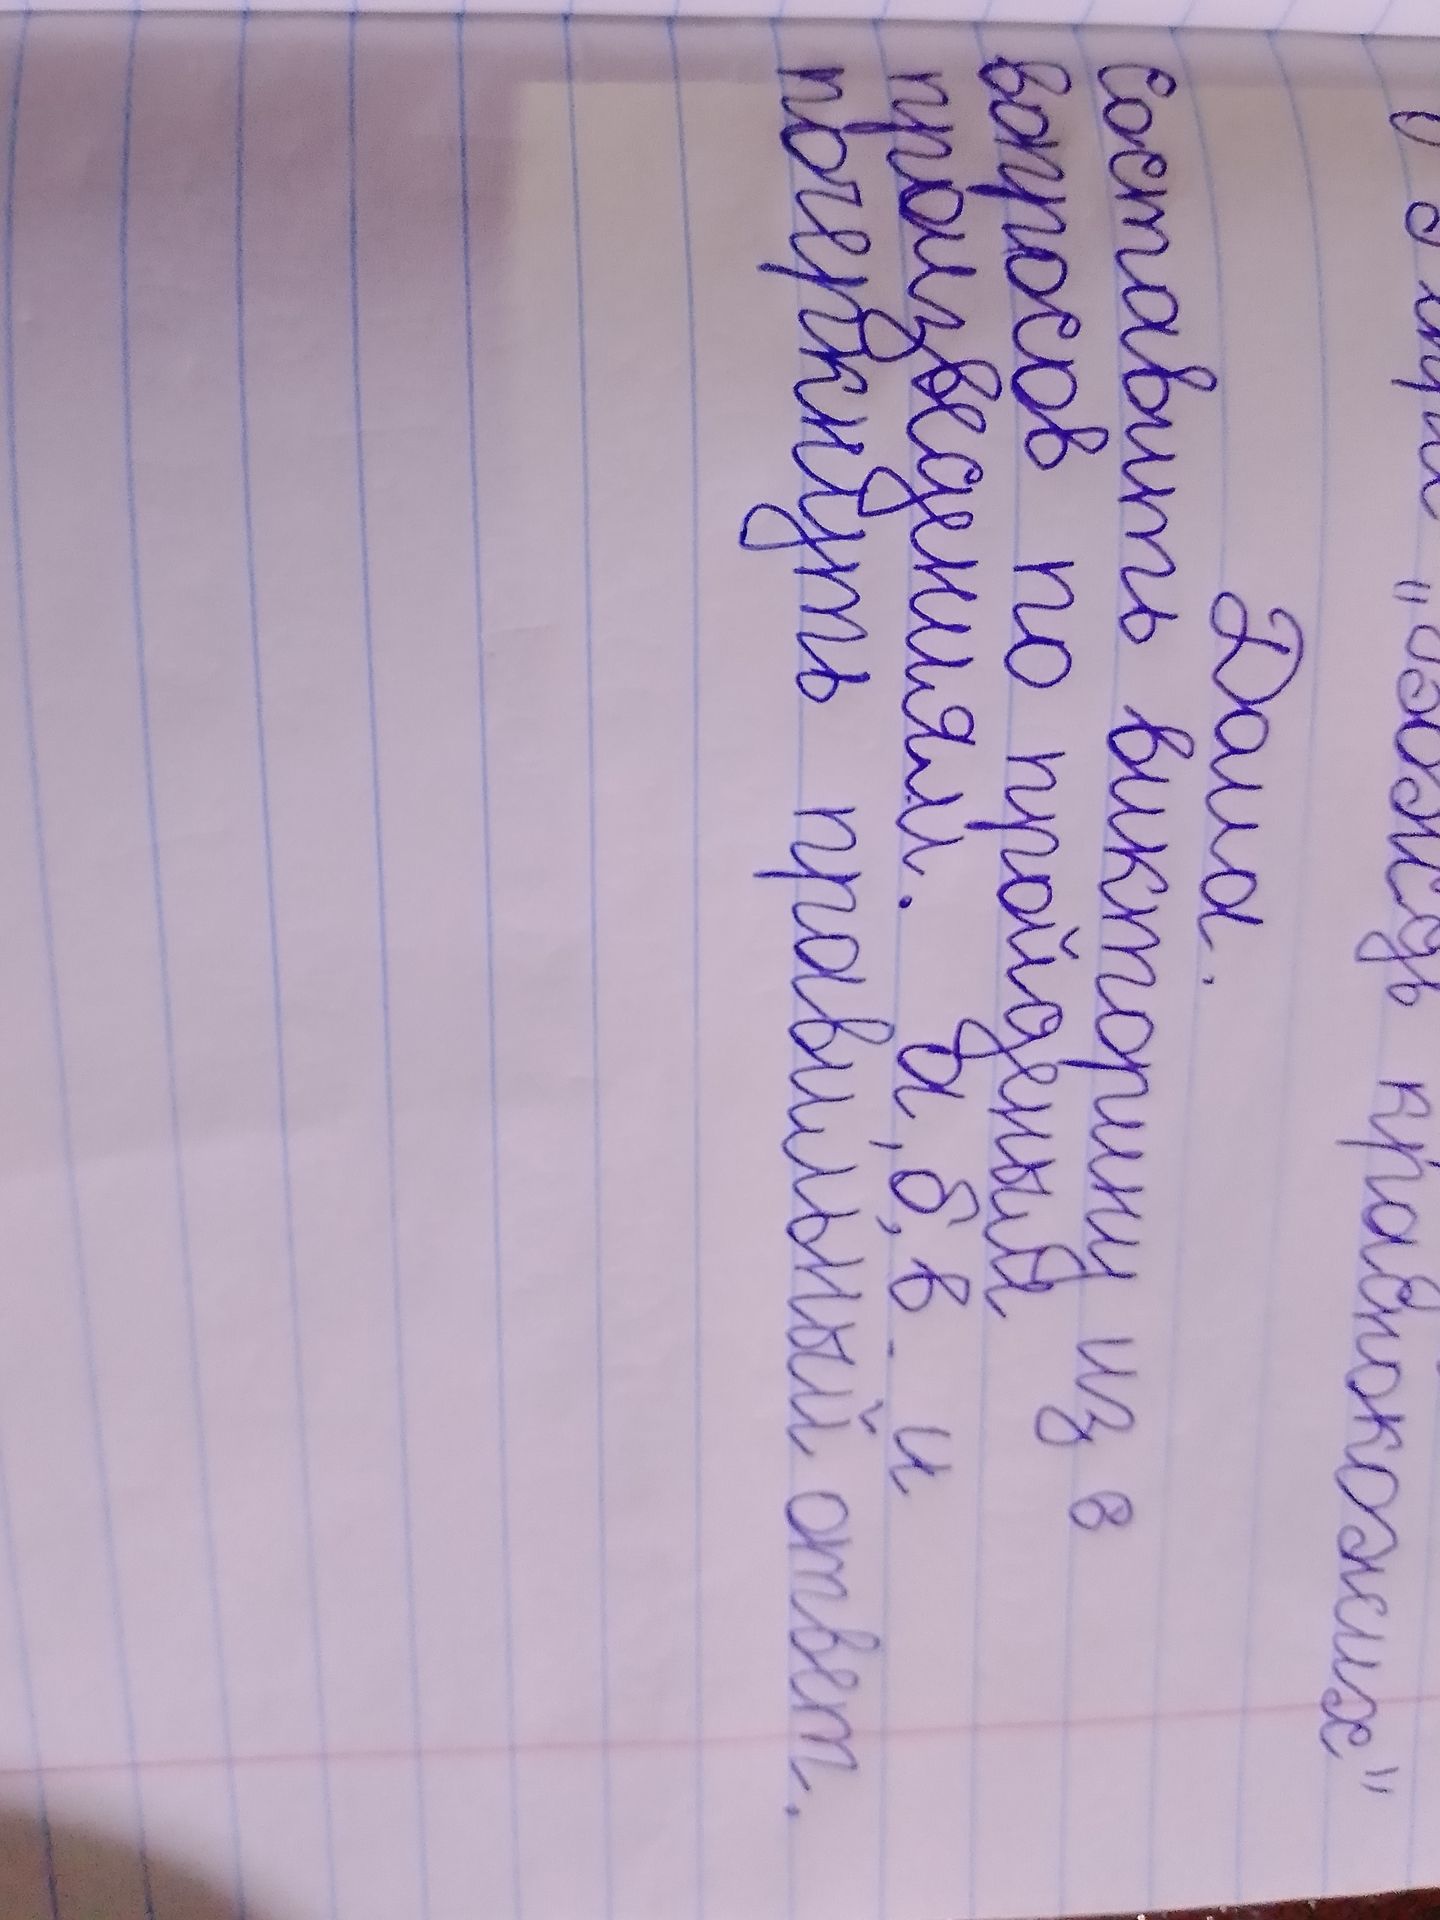 "Вождь краснокожих"
Дома.
Составить викторину из 6
вопросов по пройденый
произведениям. а, б, в. и
почеркнуть правильный ответ.